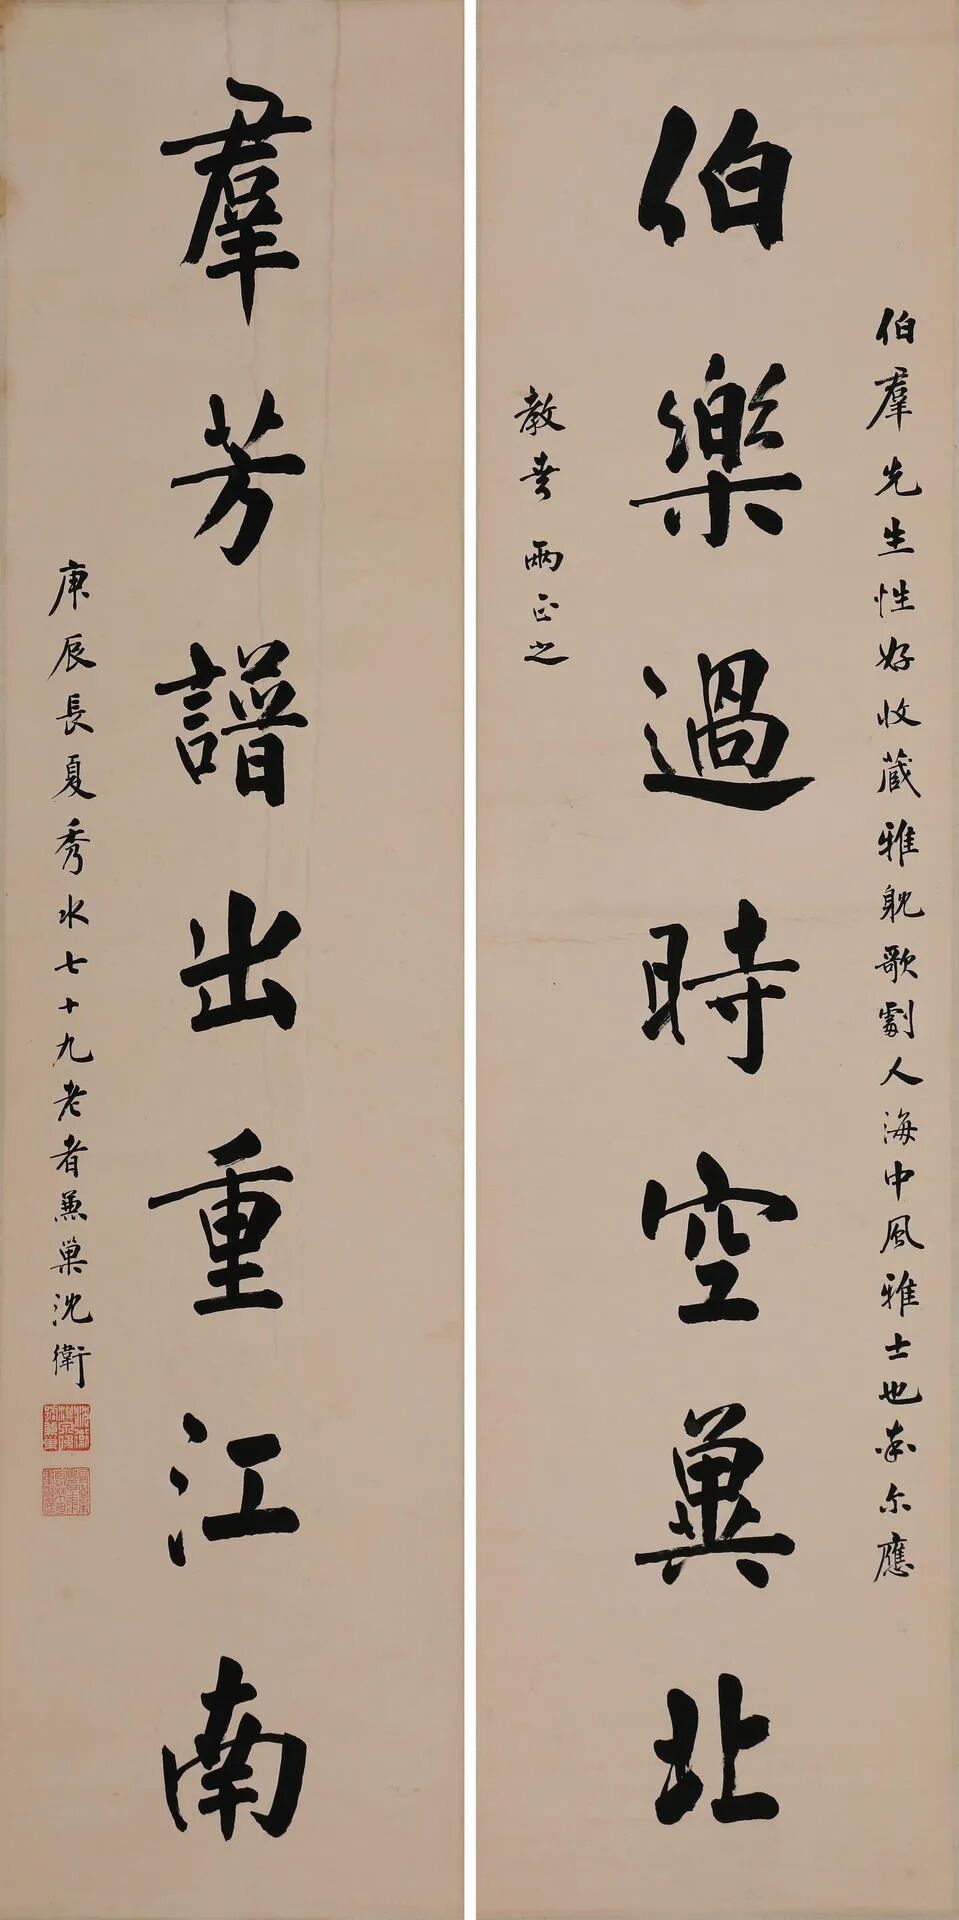 伯羣先生性好收藏雅躭歌劇人海中風雅士也率尔應
伯樂過時空冀北
教幸兩正之
羣芳譜出重江南
庚辰長夏秀水七十九老者兼巢沈衛